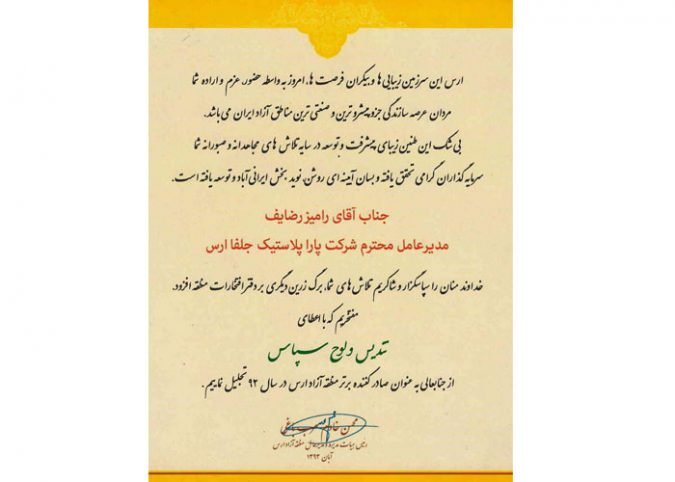 ارس این سرزمین زیبایی ها و بیکران فرصت ها، امروز به واسطه حضور، عزم و اراده شما
مردان عرصه سازندگی جزو پیشروترین و صنعتی ترین مناطق آزاد ایران می باشد.
بی شک این طنین زیبای پیشرفت و توسعه در سایه تلاش های مجاهدانه و صبورانه شما
سرمایه گذاران گرامی تحقق یافته و بسان آیینه ای روشن، نوید بخش ایرانی آباد و توسعه یافته است.
جناب آقای رامیز رضایف
مدیرعامل محترم شرکت پارا پلاستیک جلفا ارس
خداوند منان را سپاسگزار و شاکریم تلاش های شما، برگ زرین دیگری بر دفتر افتخارات منطقه افزود.
مفتخریم که با اعطای
تندیس و لوح سپاس
از جنابعالی به عنوان صادر کننده برتر منطقه آزاد ارس در سال ۹۲ تجلیل نماییم.
محسن خادم عرب باغی
رئیس هیات مدیره و مدیرعامل منطقه آزاد ارس
آبان ۱۳۹۳